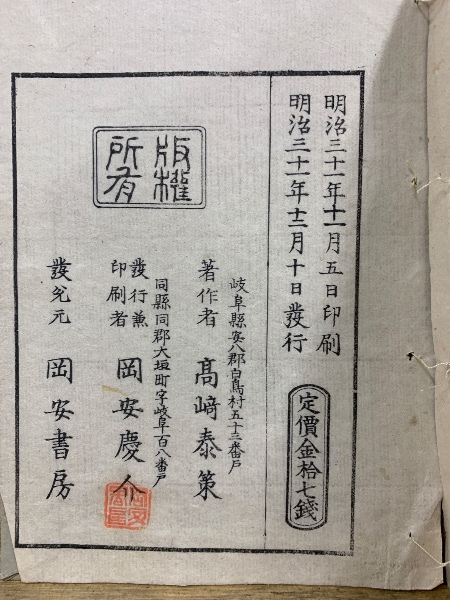 明治三十一年十一月五日印刷
明治三十一年十二月十日發行
定價金拾七錢
岐阜縣安八郡白鳥村五十三番戸
著作者 高﨑泰策
同縣同郡大垣町字岐阜百八番戸
發行兼印刷者 岡安慶介
發兌元 岡安書房
版權所有